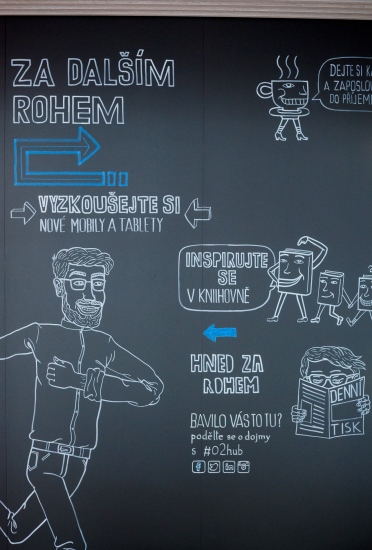 ZA DALŠÍM
ROHEM
VYZKOUŠEJTE SI
NOVÉ MOBILY A TABLETY
DEJTE SI
A ZAPOSLO
DO PŘÍJEM
INSPIRUJTE
SE
V KNIHOVNĚ
HNED ZA
ROHEM
DENNÍ
TISK
BAVILO VÁS TO TU?
podělte se o dojmy
s #O2hub